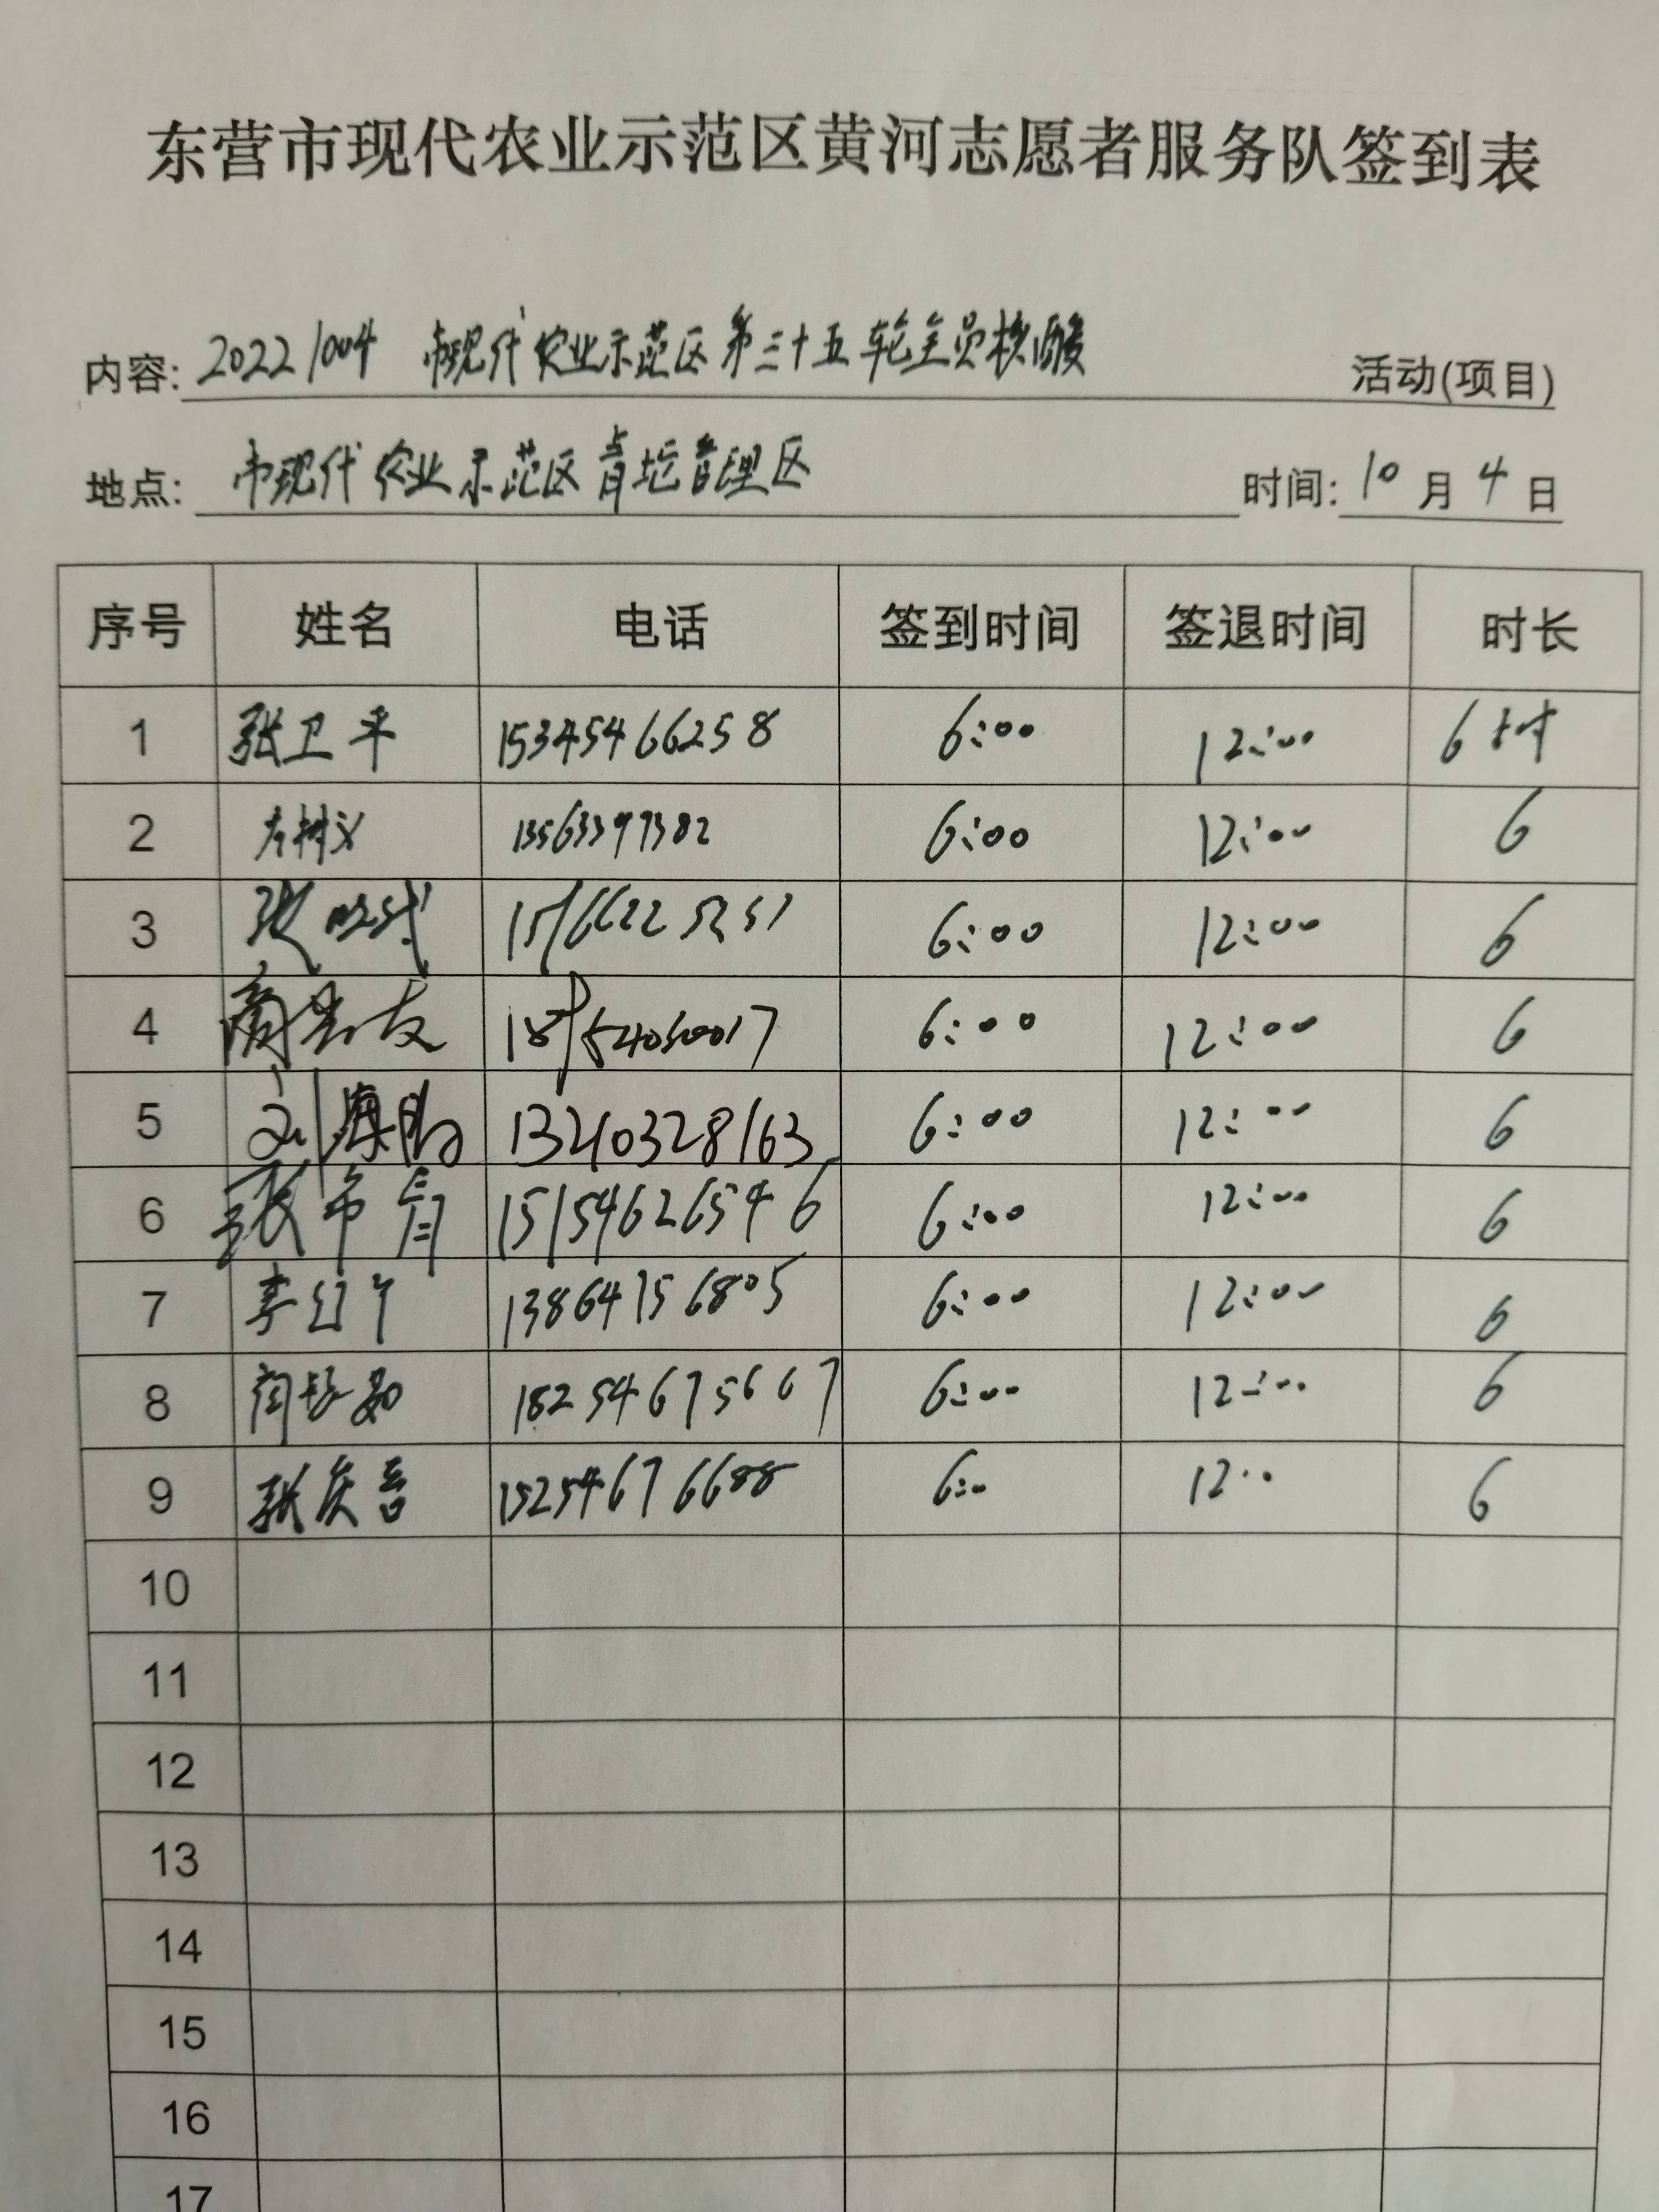 东营市现代农业示范区黄河志愿者服务队签到表
内容: 20221004 市现代农业示范区第三十五轮全员核酸 活动(项目)
地点: 市现代农业示范区青坨管理区 时间: 10 月 4 日
序号 姓名 电话 签到时间 签退时间 时长
1 张卫平 15345466258 6:00 12:00 6小时
2 13563397382 6:00 12:00 6
3 张 6:00 12:00 6
4 商 友 6:00 12:00 6
5 刘海 13210328163 6:00 12:00 6
6 张希青 15154626546 6:00 12:00 6
7 李红 13864156805 6:00 12:00 6
8 18254675667 6:00 12:00 6
9 张庆吉 15254676688 6:00 12:00 6
10
11
12
13
14
15
16
17